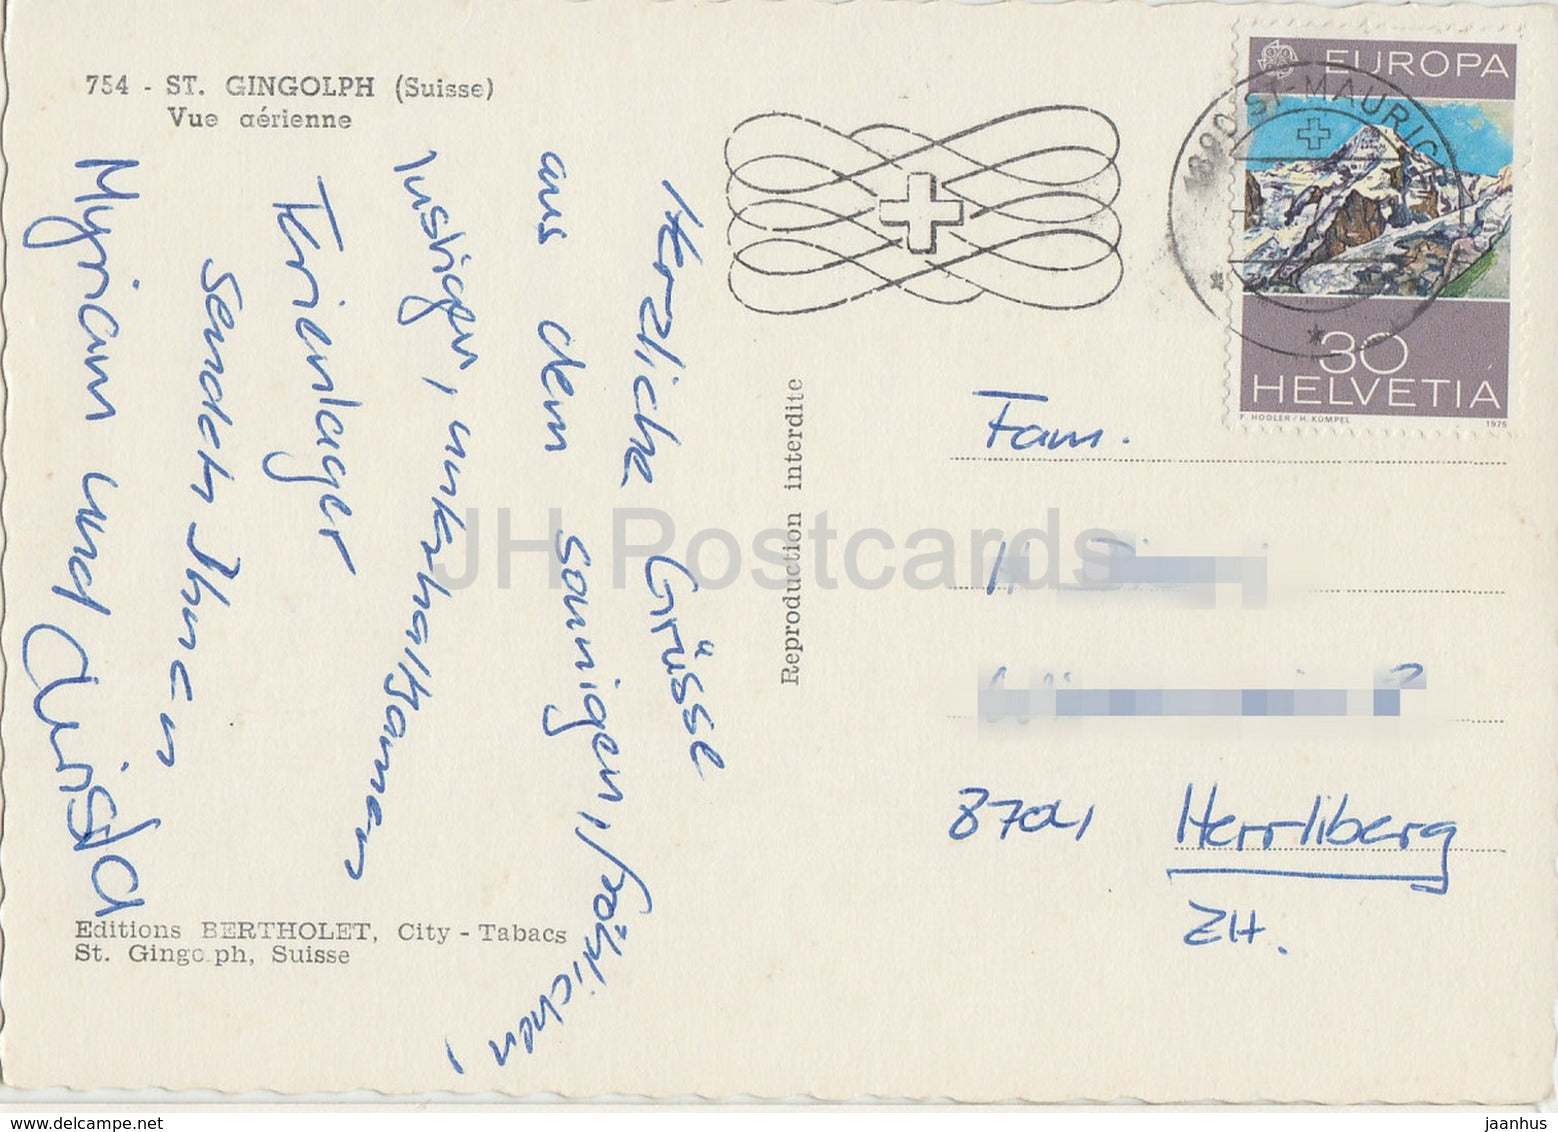 754 - ST. GINGOLPH (Suisse)
Vue aérienne
Herzliche Grüsse
aus dem sonnigen, fröhlichen,
lustigen, unterhaltsamen
Ferienlager
Senden Ihnen
Myriam und Christa
Editions BERTHOLET, City - Tabacs
St. Gingolph, Suisse
Reproduction interdite
EUROPA
1890 ST-MAURICE
30
HELVETIA
F. HODLER / H. KÜMPEL 1975
Fam.
H. D
8704 Herrliberg
ZH.
JH Postcards
jaanhus
www.delcampe.net